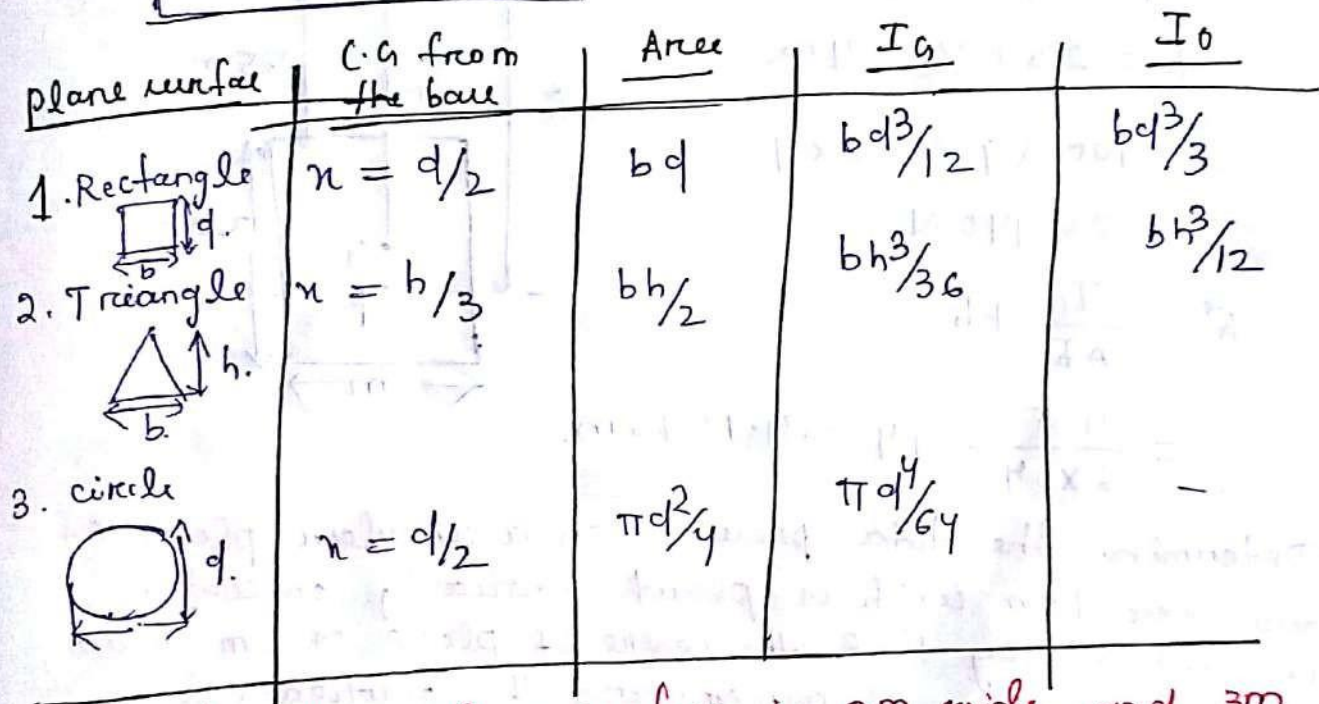 plane surface | C.G from the base | Area | IG | I0
1. Rectangle | x = d/2 | bd | bd³/12 | bd³/3
d.
b
2. Triangle | x = h/3 | bh/2 | bh³/36 | bh³/12
h.
b.
3. circle | x = d/2 | πd²/4 | πd⁴/64 | -
d.
wide and 3m